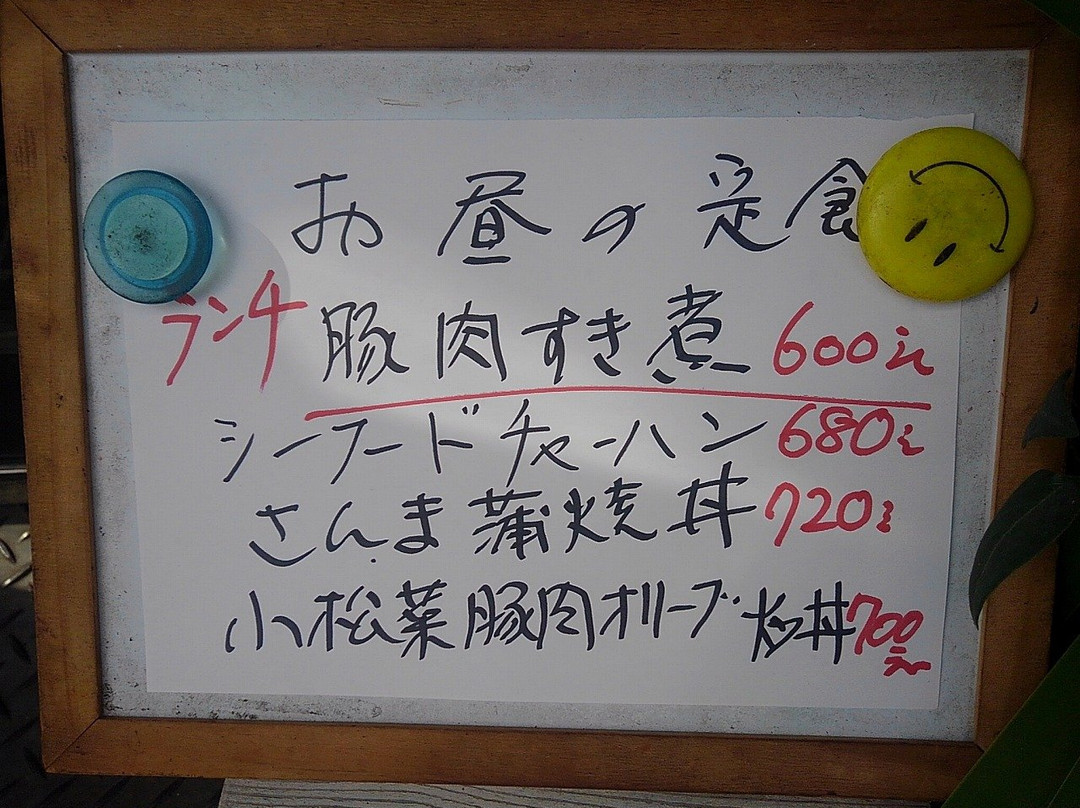 お昼の定食
ランチ 豚肉すき煮 600円
シーフードチャーハン 680円
さんま蒲焼丼 720円
小松菜豚肉オリーブ炒丼 700円